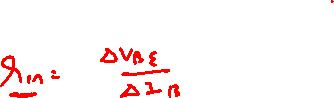 r_in = ΔV_BE / ΔI_B